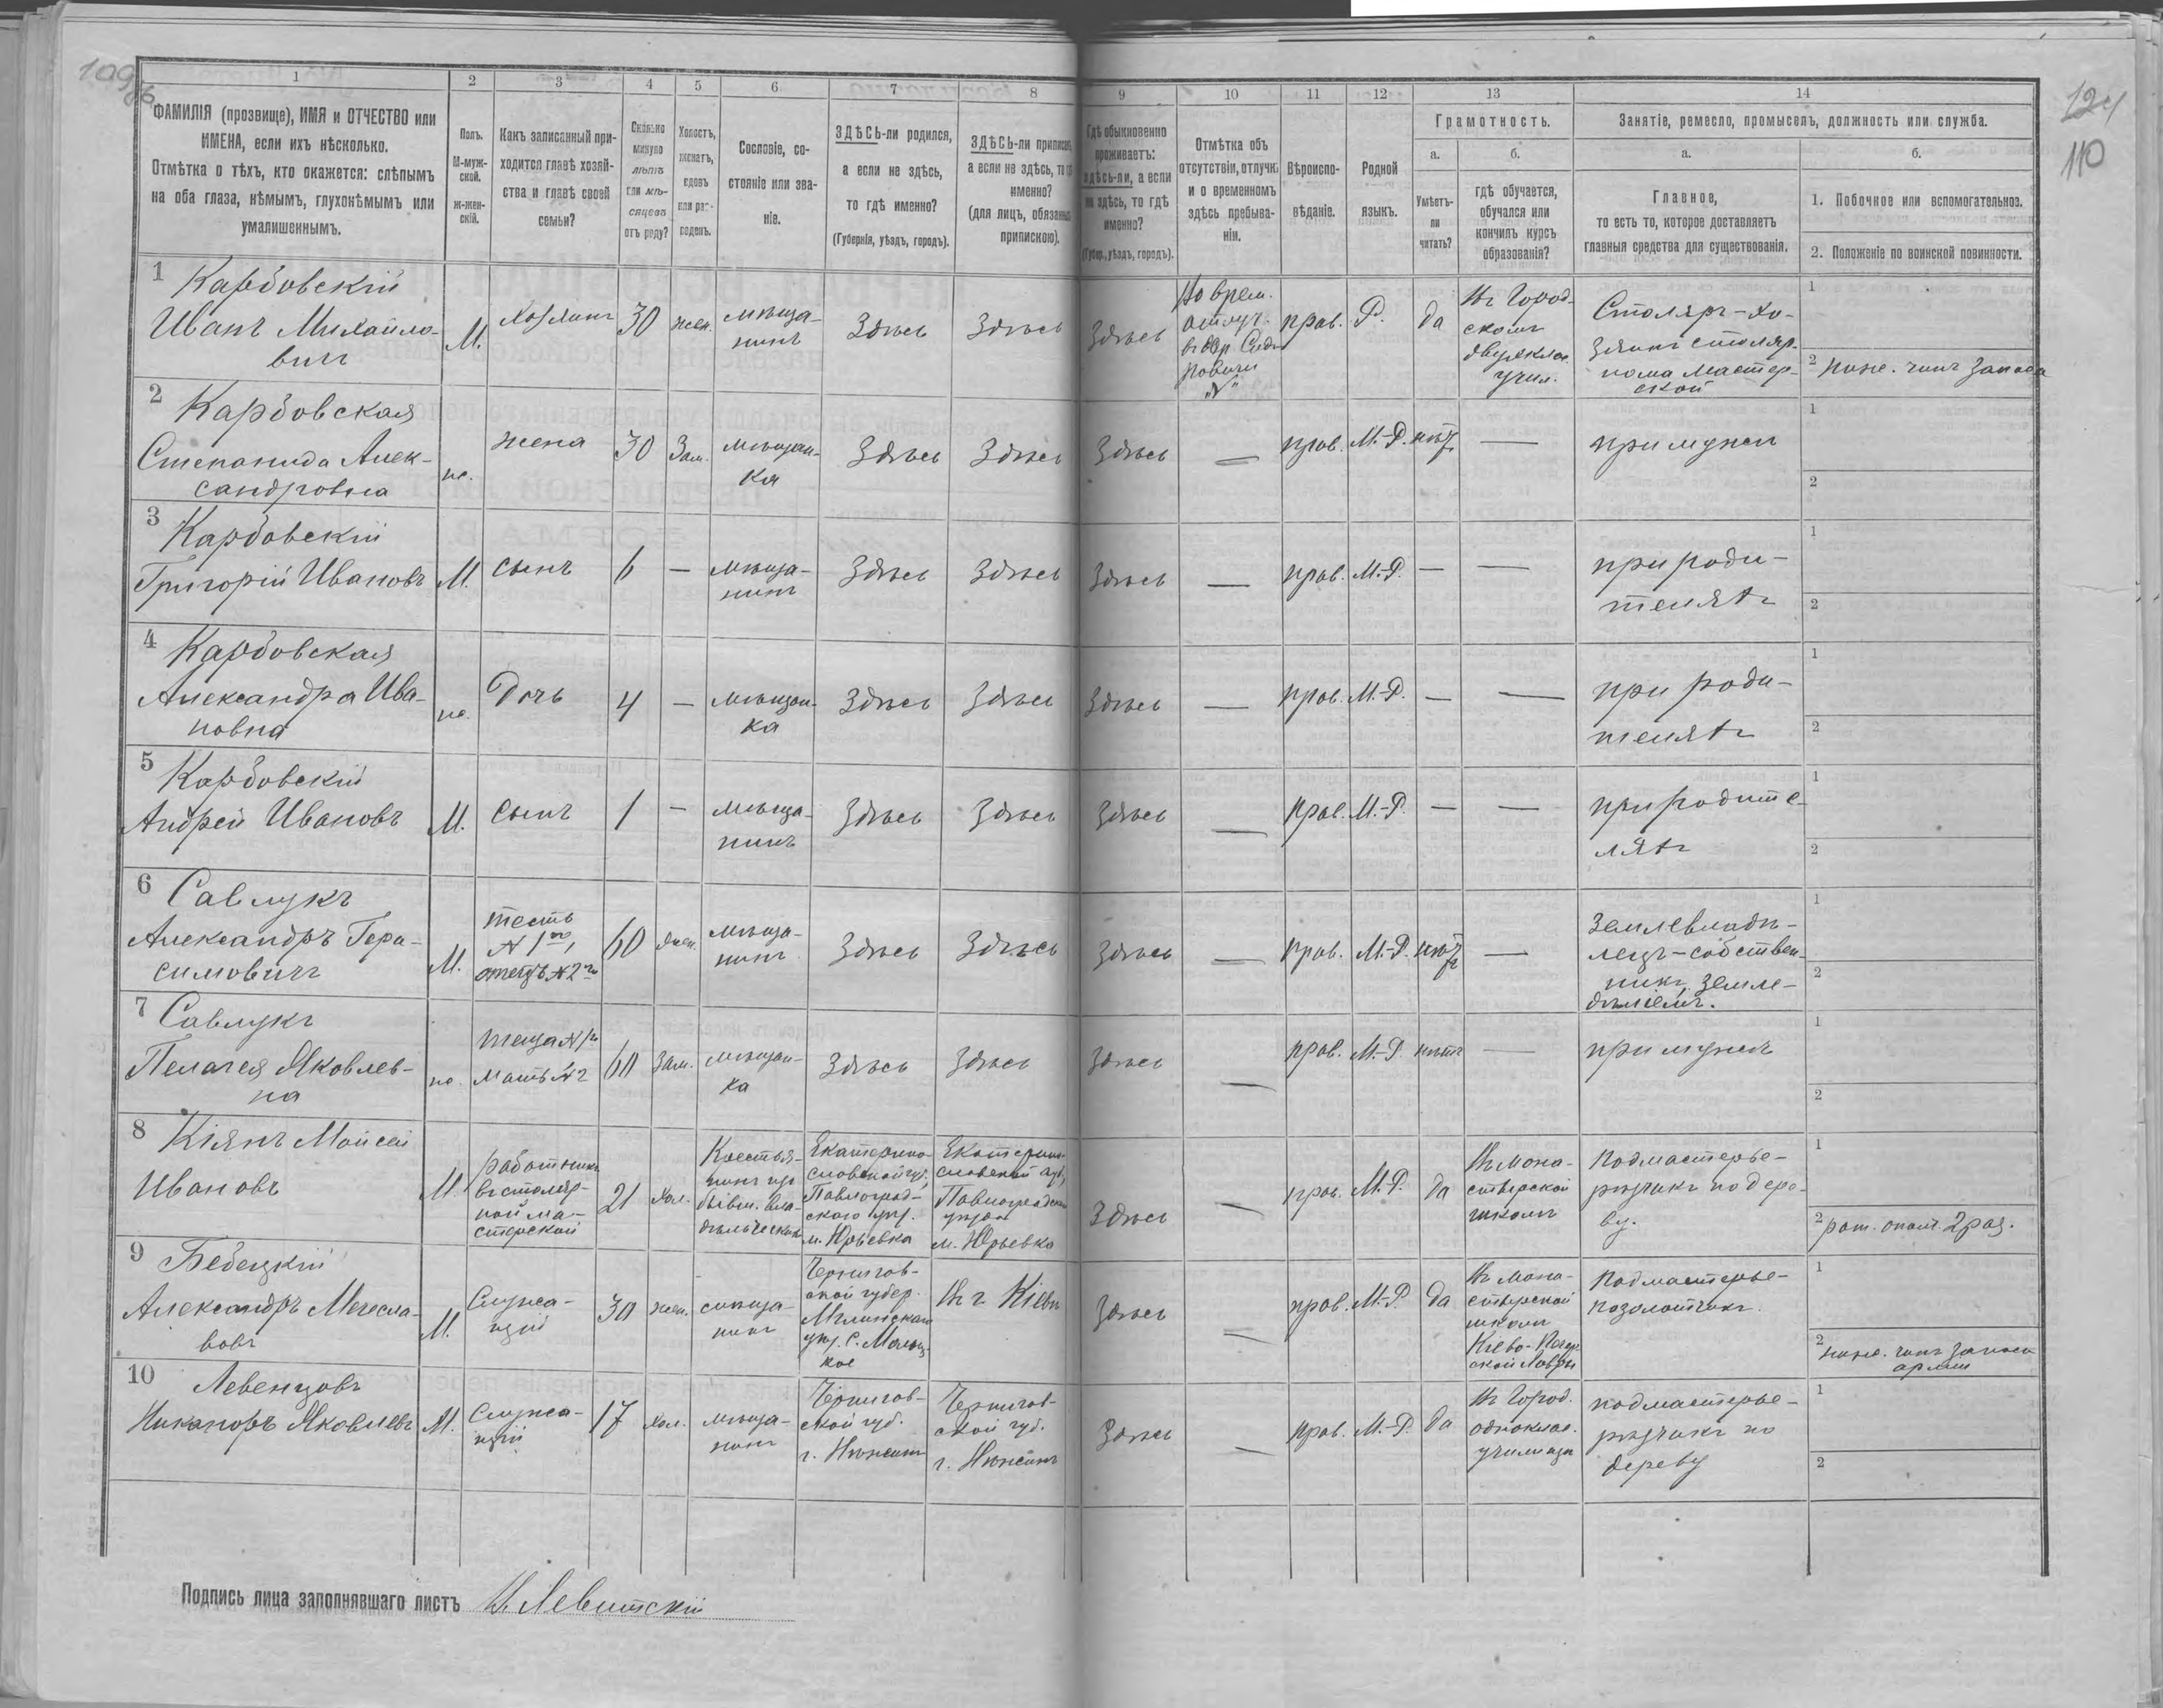 109
1 2 3 4 5 6 7 8 9 10 11 12 13 14
124
110
ФАМИЛІЯ (прозвище), ИМЯ и ОТЧЕСТВО или
ИМЕНА, если ихъ нѣсколько.
Отмѣтка о тѣхъ, кто окажется: слѣпымъ
на оба глаза, нѣмымъ, глухонѣмымъ или
умалишеннымъ.
Полъ.
М-муж-
ской.
ж-жен-
скій.
Какъ записанный при-
ходится главѣ хозяй-
ства и главѣ своей
семьи?
Сколько
минуло
лѣтъ
или мѣ-
сяцевъ
отъ роду?
Холостъ,
женатъ,
вдовъ
или раз-
веденъ.
Сословіе, со-
стояніе или зва-
ніе.
ЗДѢСЬ-ли родился,
а если не здѣсь,
то гдѣ именно?
(Губернія, уѣздъ, городъ).
ЗДѢСЬ-ли приписанъ
а если не здѣсь, то гдѣ
именно?
(для лицъ, обязанныхъ
припискою).
Гдѣ обыкновенно
проживаетъ:
здѣсь-ли, а если
не здѣсь, то гдѣ
именно?
(Губер., уѣздъ, городъ).
Отмѣтка объ
отсутствіи, отлучкѣ
и о временномъ
здѣсь пребыва-
ніи.
Вѣроиспо-
вѣданіе.
Родной
языкъ.
Грамотность.
а.
Умѣетъ-
ли
читать?
б.
гдѣ обучается,
обучался или
кончилъ курсъ
образованія?
Занятіе, ремесло, промыселъ, должность или служба.
а.
Главное,
то есть то, которое доставляетъ
главныя средства для существованія.
б.
1. Побочное или вспомогательное.
2. Положеніе по воинской повинности.
1 Карбовскій
Иванъ Михайло-
вичъ
М.
Хозяинъ
30
жен.
мѣща-
нинъ
Здѣсь
Здѣсь
Здѣсь
Во врем.
отлуч.
прав.
Р.
да
Въ Город-
скомъ
двухклас
учил.
Столяръ-хо-
зяинъ столяр-
ной мастер-
ской
1
2 ниж. чинъ запаса
2 Карбовская
Степанида Алек-
сандровна
ж.
жена
30
Зам.
мѣщан-
ка
Здѣсь
Здѣсь
Здѣсь
—
прав.
М.-Р.
нѣтъ
—
при мужѣ
1
2
3 Карбовскій
Григорій Ивановъ
М.
сынъ
6
—
мѣща-
нинъ
Здѣсь
Здѣсь
Здѣсь
—
прав.
М.-Р.
—
—
при роди-
теляхъ
1
2
4 Карбовская
Александра Ива-
новна
ж.
Дочь
4
—
мѣщан-
ка
Здѣсь
Здѣсь
Здѣсь
—
прав.
М.-Р.
—
—
при роди-
теляхъ
1
2
5 Карбовскій
Андрей Ивановъ
М.
Сынъ
1
—
мѣща-
нинъ
Здѣсь
Здѣсь
Здѣсь
—
прав.
М.-Р.
—
—
при родите-
ляхъ
1
2
6 Савлукъ
Александръ Гера-
симовичъ
М.
тесть
№ 1го,
отецъ № 2го
60
жен.
мѣща-
нинъ
Здѣсь
Здѣсь
Здѣсь
—
прав.
М.-Р.
нѣтъ
—
Землевладѣ-
лецъ-собствен-
никъ, земле-
дѣліемъ.
1
2
7 Савлукъ
Пелагея Яковлев-
на
ж.
теща № 1го
Мать № 2
60
Зам.
мѣщан-
ка
Здѣсь
Здѣсь
Здѣсь
—
прав.
М.-Р.
нѣтъ
—
при мужѣ
1
2
8 Кіянъ Мойсей
Ивановъ
М.
работникъ
въ столяр-
ной ма-
стерской
21
хол.
Крестья-
нинъ изъ
бывш. вла-
дѣльческихъ
Екатерино-
славской губ,
Павлоград-
скаго уѣз.
м. Юрьевка
Екатерино-
славской губ,
Павлоградскаго
уѣзда
м. Юрьевка
Здѣсь
—
прав.
М.-Р.
да
Въ мона-
стырской
школѣ
Подмастерье-
рѣзчикъ по дере-
ву.
1
2 рат. опол. 2 раз.
9 Бебецкій
Александръ Мечесла-
вовъ
М.
Служа-
щій
30
жен.
мѣща-
нинъ
Чернигов-
ской губер.
Мглинскаго
уѣз. с.
Въ г. Кіевѣ
Здѣсь
—
прав.
М.-Р.
да
Въ мона-
стырской
школѣ
Кіево-Печер-
ской Лавры
Подмастерье-
позолотчикъ.
1
2 ниж. чинъ запаса
арміи
10 Левенцовъ
Никаноръ Яковлевъ
М.
Служа-
щій
17
хол.
мѣща-
нинъ
Чернигов-
ской губ.
г. Нѣжинъ
Чернигов-
ской губ.
г. Нѣжинъ
Здѣсь
—
прав.
М.-Р.
да
Въ Город.
одноклас.
училищѣ
подмастерье-
рѣзчикъ по
дереву
1
2
Подпись лица заполнявшаго листъ И. Левитскій